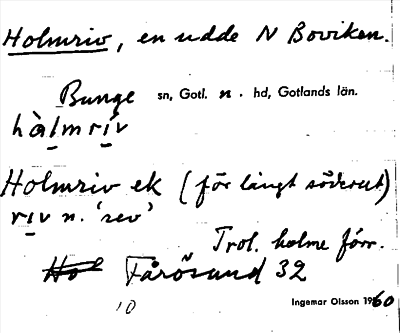 Holmriv, en udde N Boviken.
Bunge sn, Gotl. n. hd, Gotlands län.
hàlmrív
Holmriv ek (för långt söderut)
rịv n. 'rev'
Trol. holme förr.
Fårösund 32
Ingemar Olsson 1960
10